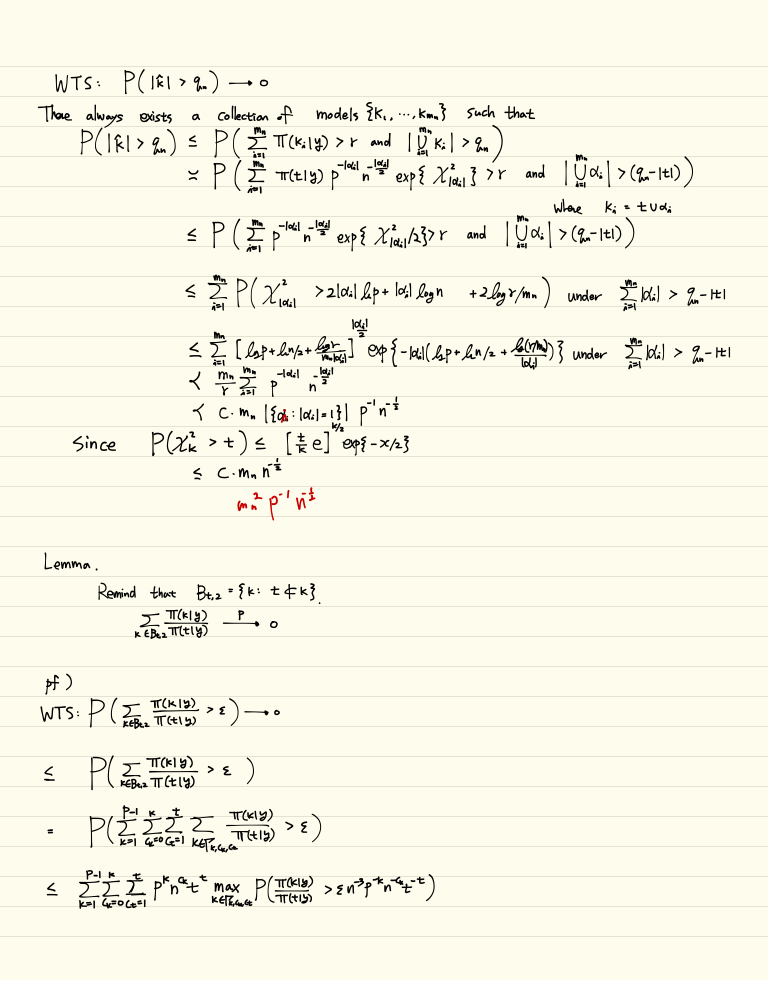 WTS: P(|k̂| > qₙ) → 0
There always exists a collection of models {K₁, ⋯, K_{mₙ}} such that
P(|k̂| > qₙ) ≤ P( ∑_{i=1}^{mₙ} π(kᵢ|y) > r and |⋃_{i=1}^{mₙ} Kᵢ| > qₙ )
≍ P( ∑_{i=1}^{mₙ} π(t|y) p^{-|αᵢ|} n^{-|αᵢ|/2} exp{ χ²_{|αᵢ|} } > r and |⋃_{i=1}^{mₙ} αᵢ| > (qₙ-|t|) )
where Kᵢ = t ∪ αᵢ
≤ P( ∑_{i=1}^{mₙ} p^{-|αᵢ|} n^{-|αᵢ|/2} exp{ χ²_{|αᵢ|}/2 } > r and |⋃_{i=1}^{mₙ} αᵢ| > (qₙ-|t|) )
≤ ∑_{i=1}^{mₙ} P( χ²_{|αᵢ|} > 2|αᵢ| log p + |αᵢ| log n + 2 log r/mₙ ) under ∑_{i=1}^{mₙ} |αᵢ| > qₙ - |t|
≤ ∑_{i=1}^{mₙ} [ log p + log n/2 + log r/(mₙ|αᵢ|) ]^{|αᵢ|/2} exp{ -|αᵢ| ( log p + log n/2 + log(r/mₙ)/|αᵢ| ) } under ∑_{i=1}^{mₙ} |αᵢ| > qₙ - |t|
≺ mₙ/r ∑_{i=1}^{mₙ} p^{-|αᵢ|} n^{-|αᵢ|/2}
≺ C·mₙ |{αᵢ : |αᵢ| = 1}| p^{-1} n^{-1/2}
Since P(χ²_k > t) ≤ [t/k e]^{k/2} exp{-x/2}
≤ C·mₙ n^{-1/2}
mₙ² p^{-1} n^{-1/2}
Lemma.
Remind that B_{t,2} = {k : t ⊄ k}.
∑_{k∈B_{t,2}} π(k|y)/π(t|y) →^{p} 0
pf )
WTS: P( ∑_{k∈B_{t,2}} π(k|y)/π(t|y) > ε ) → 0
≤ P( ∑_{k∈B_{t,2}} π(k|y)/π(t|y) > ε )
= P( ∑_{k=1}^{p-1} ∑_{Cₖ=0}^{k} ∑_{Cₜ=1}^{t} ∑_{k∈Γ_{k,Cₖ,Cₜ}} π(k|y)/π(t|y) > ε )
≤ ∑_{k=1}^{p-1} ∑_{Cₖ=0}^{k} ∑_{Cₜ=1}^{t} p^k n^{Cₖ} t^t max_{k∈Γ_{k,Cₖ,Cₜ}} P( π(k|y)/π(t|y) > ε n^{-3} p^{-k} n^{-Cₖ} t^{-t} )